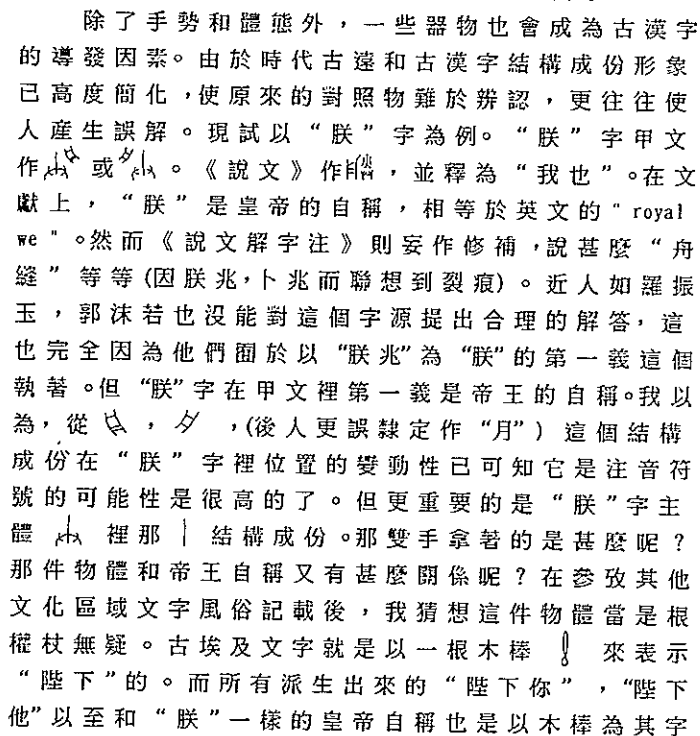 除了手勢和體態外，一些器物也會成為古漢字
的導發因素。由於時代古遠和古漢字結構成份形象
已高度簡化，使原來的對照物難於辨認，更往往使
人產生誤解。現試以“朕”字為例。“朕”字甲文
作 或 。《說文》作 ，並釋為“我也”。在文
獻上，“朕”是皇帝的自稱，相等於英文的"royal
we"。然而《說文解字注》則妄作修補，說甚麼“舟
縫”等等(因朕兆，卜兆而聯想到裂痕)。近人如羅振
玉，郭沫若也沒能對這個字源提出合理的解答，這
也完全因為他們囿於以“朕兆”為“朕”的第一義這個
執著。但“朕”字在甲文裡第一義是帝王的自稱。我以
為，從 ， ，(後人更誤隸定作“月”) 這個結構
成份在“朕”字裡位置的變動性已可知它是注音符
號的可能性是很高的了。但更重要的是“朕”字主
體 裡那 | 結構成份。那雙手拿著的是甚麼呢？
那件物體和帝王自稱又有甚麼關係呢？在參攷其他
文化區域文字風俗記載後，我猜想這件物體當是根
權杖無疑。古埃及文字就是以一根木棒 來表示
“陛下”的。而所有派生出來的“陛下你”，“陛下
他”以至和“朕”一樣的皇帝自稱也是以木棒為其字